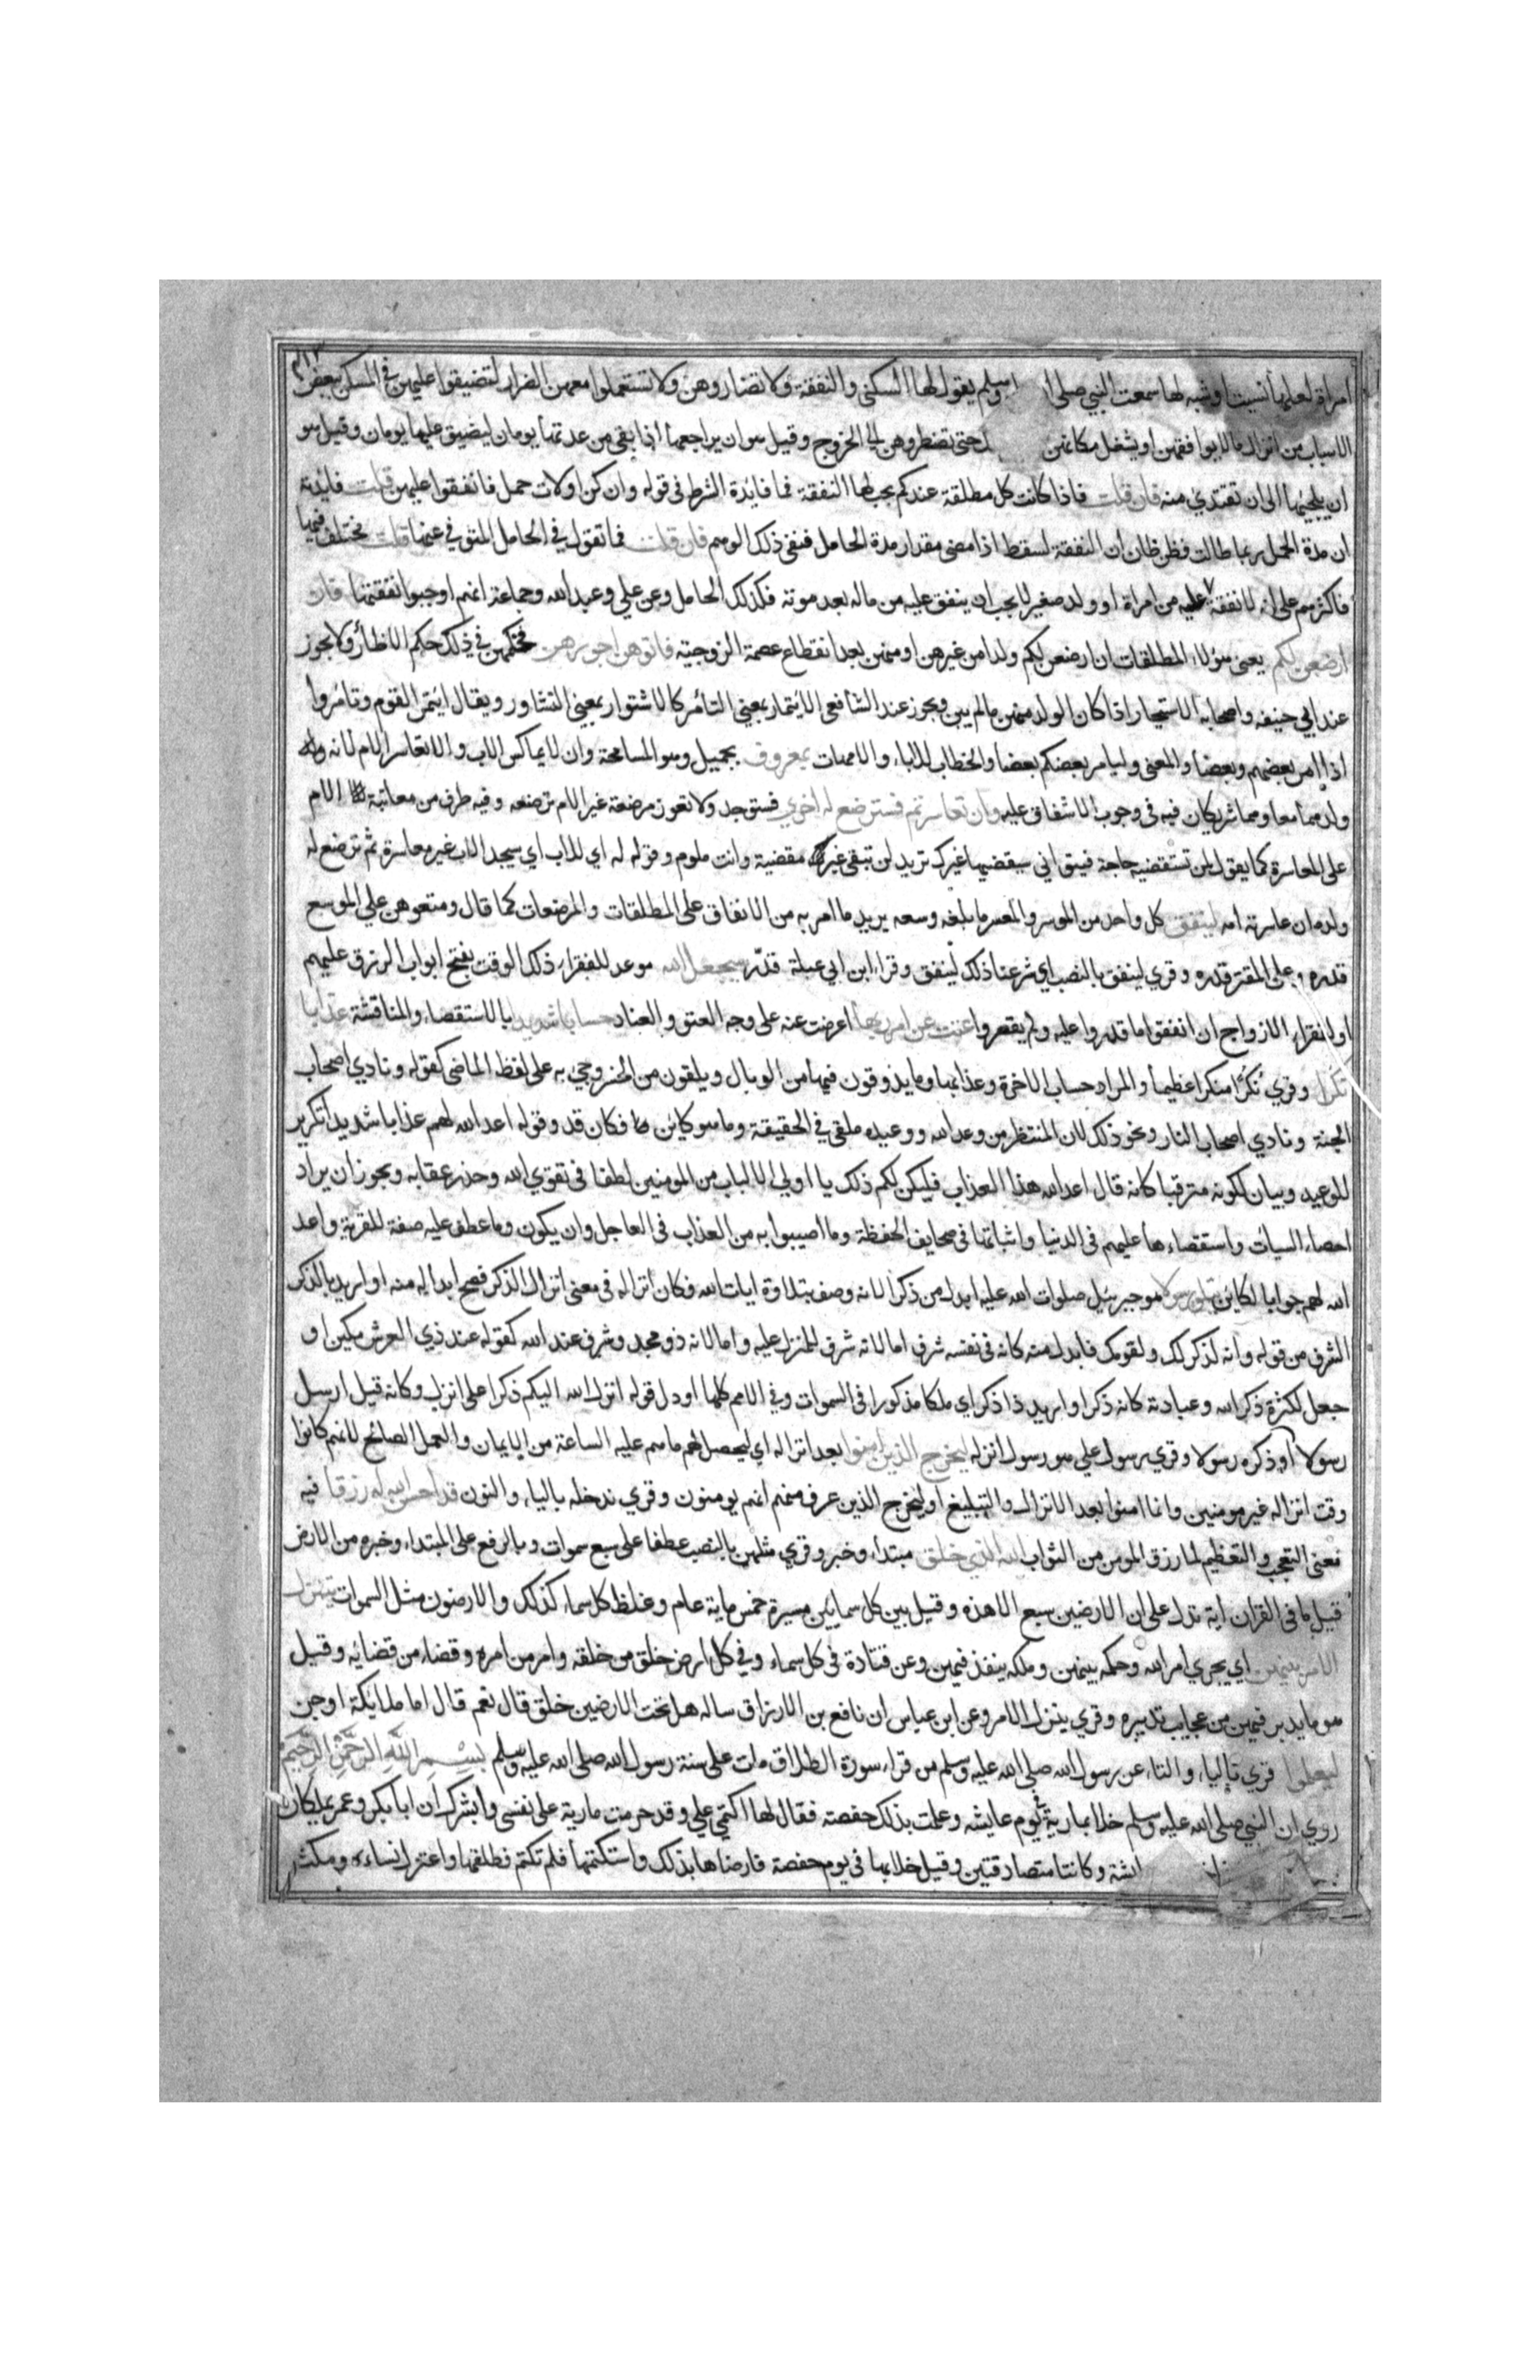 امراة لعلها نسيت او شبه لها سمعت النبي صلي ا وسلم يقول لها السكني والنفقة ولا تضاروهن ولا تستعملوا معهن الضرار لتضيقوا عليهن في المسكن ببعض
الاسباب من انزال من لا يوافقهن او يشغل مكانهن حتي تضطروهن الي الخروج وقيل هو ان يراجعها اذا بقي من عدتها يومان ليضيق عليها يومان وقيل هو
ان يلجيها الي ان تفتدي منه فان قلت فاذا كانت كل مطلقة عندكم يجب لها النفقة فما فايدة الشرط في قوله وان كن اولات حمل فانفقوا عليهن قلت فايدته
ان مدة الحمل ربما طالت فظن ظان ان النفقة تسقط اذا مضي مقدار مدة الحامل فنفي ذلك الوهم فان قلت فما تقول في الحامل المتوفي عنها قلت مختلف فيها
فاكثرهم علي انه لا نفقة عليه من امراة او ولد صغير لا يجب ان ينفق عليه من ماله بعد موته فكذلك الحامل وعن علي وعبد الله وجماعة انهم اوجبوا نفقتها فان
ارضعن لكم يعني هولاء المطلقات ان ارضعن لكم ولدا من غيرهن او منهن بعد انقطاع عصمة الزوجية فاتوهن اجورهن فحكمهن في ذلك حكم الاظار ولا يجوز
عند ابي حنيفه واصحابه الاستيجار اذا كان الولد منهن ما لم يبن ويجوز عند الشافعي الايتمار بمعني التامر كالاشتوار بمعني التشاور ويقال ايتمر القوم وتامروا
اذا امر بعضهم بعضا والمعني وليامر بعضكم بعضا والخطاب للاباء والامهات بمعروف بجميل وهو المسامحة وان لا يماكس الاب ولا تعاسر الام لانه ولد
ولدهما معا وهما شريكان فيه في وجوب الاشفاق عليه وان تعاسرتم فسترضع له اخري فستوجد ولا تعوز مرضعة غير الام ترضعه وفيه طرف من معاتبة الام
علي المعاسرة كما يقول لمن تستقضيه حاجة فيتواني سيقضيها غيرك تريد لن تبقي غير مقضية وانت ملوم وقوله له اي للاب اي سيجد الاب غير معاسرة ثم ترضع له
ولده ان عاسرته امه لينفق كل واحد من الموسر والمعسر ما بلغه وسعه يريد ما امر به من الانفاق علي المطلقات والمرضعات كما قال ومتعوهن علي الموسع
قدره وعلي المقتر قدره وقري لينفق بالنصب اي شرعنا ذلك لينفق وقرا ابن ابي عبلة قدّر سيجعل الله موعد للفقراء ذلك الوقت بفتح ابواب الرزق عليهم
او لفقراء الازواج ان انفقوا ما قدروا عليه ولم يقصروا عتت عن امر ربها اعرضت عنه علي وجه العتو والعناد حسابا شديدا بالاستقصاء والمناقشة عذابا
نكرا وقري نُكُرًا منكرا عظيما والمراد حساب الاخرة وعذابها وما يذوقون فيها من الوبال ويلقون من الخسر وجي به علي لفظ الماضي كقوله ونادي اصحاب
الجنة ونادي اصحاب النار ونحو ذلك لان المنتظر من وعد الله ووعيده ملقي في الحقيقة وما هو كاين فكان قد وقوله اعد الله لهم عذابا شديدا تكرير
للوعيد وبيان لكونه مترقبا كانه قال اعد الله هذا العذاب فليكن لكم ذلك يا اولي الالباب من المومنين لطفا في تقوي الله وحذر عقابه ويجوز ان يراد
احصاء السيات واستقصاءها عليهم في الدنيا واثباتها في صحايف الحفظة وما اصيبوا به من العذاب في العاجل وان يكون وما عطف عليه صفة للقرية واعد
الله لهم جوابا لكاين رسولا هو جبريل صلوات الله عليه ابدل من ذكرا لانه وصف بتلاوة ايات الله فكان انزاله في معني انزال الذكر فصح ابداله منه او اريد بالذكر
الشرف من قوله وانه لذكر لك ولقومك فابدل منه كانه في نفسه شرف اما لانه شرف للمنزل عليه واما لانه ذو مجد وشرف عند الله كقوله عند ذي العرش مكين او
جعل لكثرة ذكر الله وعبادته كانه ذكر او اريد ذا ذكر اي ملكا مذكورا في السموات وفي الامم كلها او دل قوله انزل الله اليكم ذكرا علي انزل وكانه قيل ارسل
رسولا او ذكره رسولا وقري رسول علي هو رسول انزله ليخرج الذين امنوا بعد انزاله اي ليحصل لهم ما هم عليه الساعة من الايمان والعمل الصالح لانهم كانوا
وقت انزاله غير مومنين وانما امنوا بعد الانزال والتبليغ او ليخرج الذين عرف منهم انهم يومنون وقري ندخله بالياء والنون قد احسن الله له رزقا فيه
معني التعجب والتعظيم لما رزق المومن من الثواب الله الذي خلق مبتداء وخبر وقري مثلهن بالنصب عطفا علي سبع سموات وبالرفع علي المبتداء وخبره من الارض
قيل ما في القران اية تدل علي ان الارضين سبع الا هذه وقيل بين كل سماين مسيرة خمس ماية عام وغلظ كل سماء كذلك والارضون مثل السموات يتنزل
الامر بينهن اي يجري امر الله وحكمه بينهن وملكه ينفذ فيهن وعن قتادة في كل سماء وفي كل ارض خلق من خلقه وامر من امره وقضاء من قضايه وقيل
هو ما يدبر فيهن من عجايب تدبيره وقري ينزل الامر وعن ابن عباس ان نافع بن الازراق ساله هل تحت الارضين خلق قال نعم قال اما ملايكة او جن
ليعلموا قري بالياء والتاء عن رسول الله صلي الله عليه وسلم من قراء سورة الطلاق مات علي سنة رسول الله صلي الله عليه وسلم بِسْمِ اللهِ الرَّحْمٰنِ الرَّحِيمِ
روي ان النبي صلي الله عليه وسلم خلا بمارية في يوم عايشه وعلمت بذلك حفصته فقال لها اكتمي علي وقد حرمت مارية علي نفسي وابشرك ان ابا بكر وعمر يملكان
ايشة وكانتا متصادقتين وقيل خلا بها في يوم حفصة فارضاها بذلك واستكتمها فلم تكتم فطلقها واعتزل نساءه ومكث